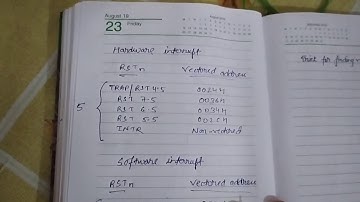 August 19
23 Friday
Hardware interrupt
RSTn Vectored address
TRAP/RST 4.5 0024H
RST 7.5 003CH
RST 6.5 0034H
5 RST 5.5 002CH
INTR Non-vectored
Software interrupt
RSTn Vectored address
Think for friday